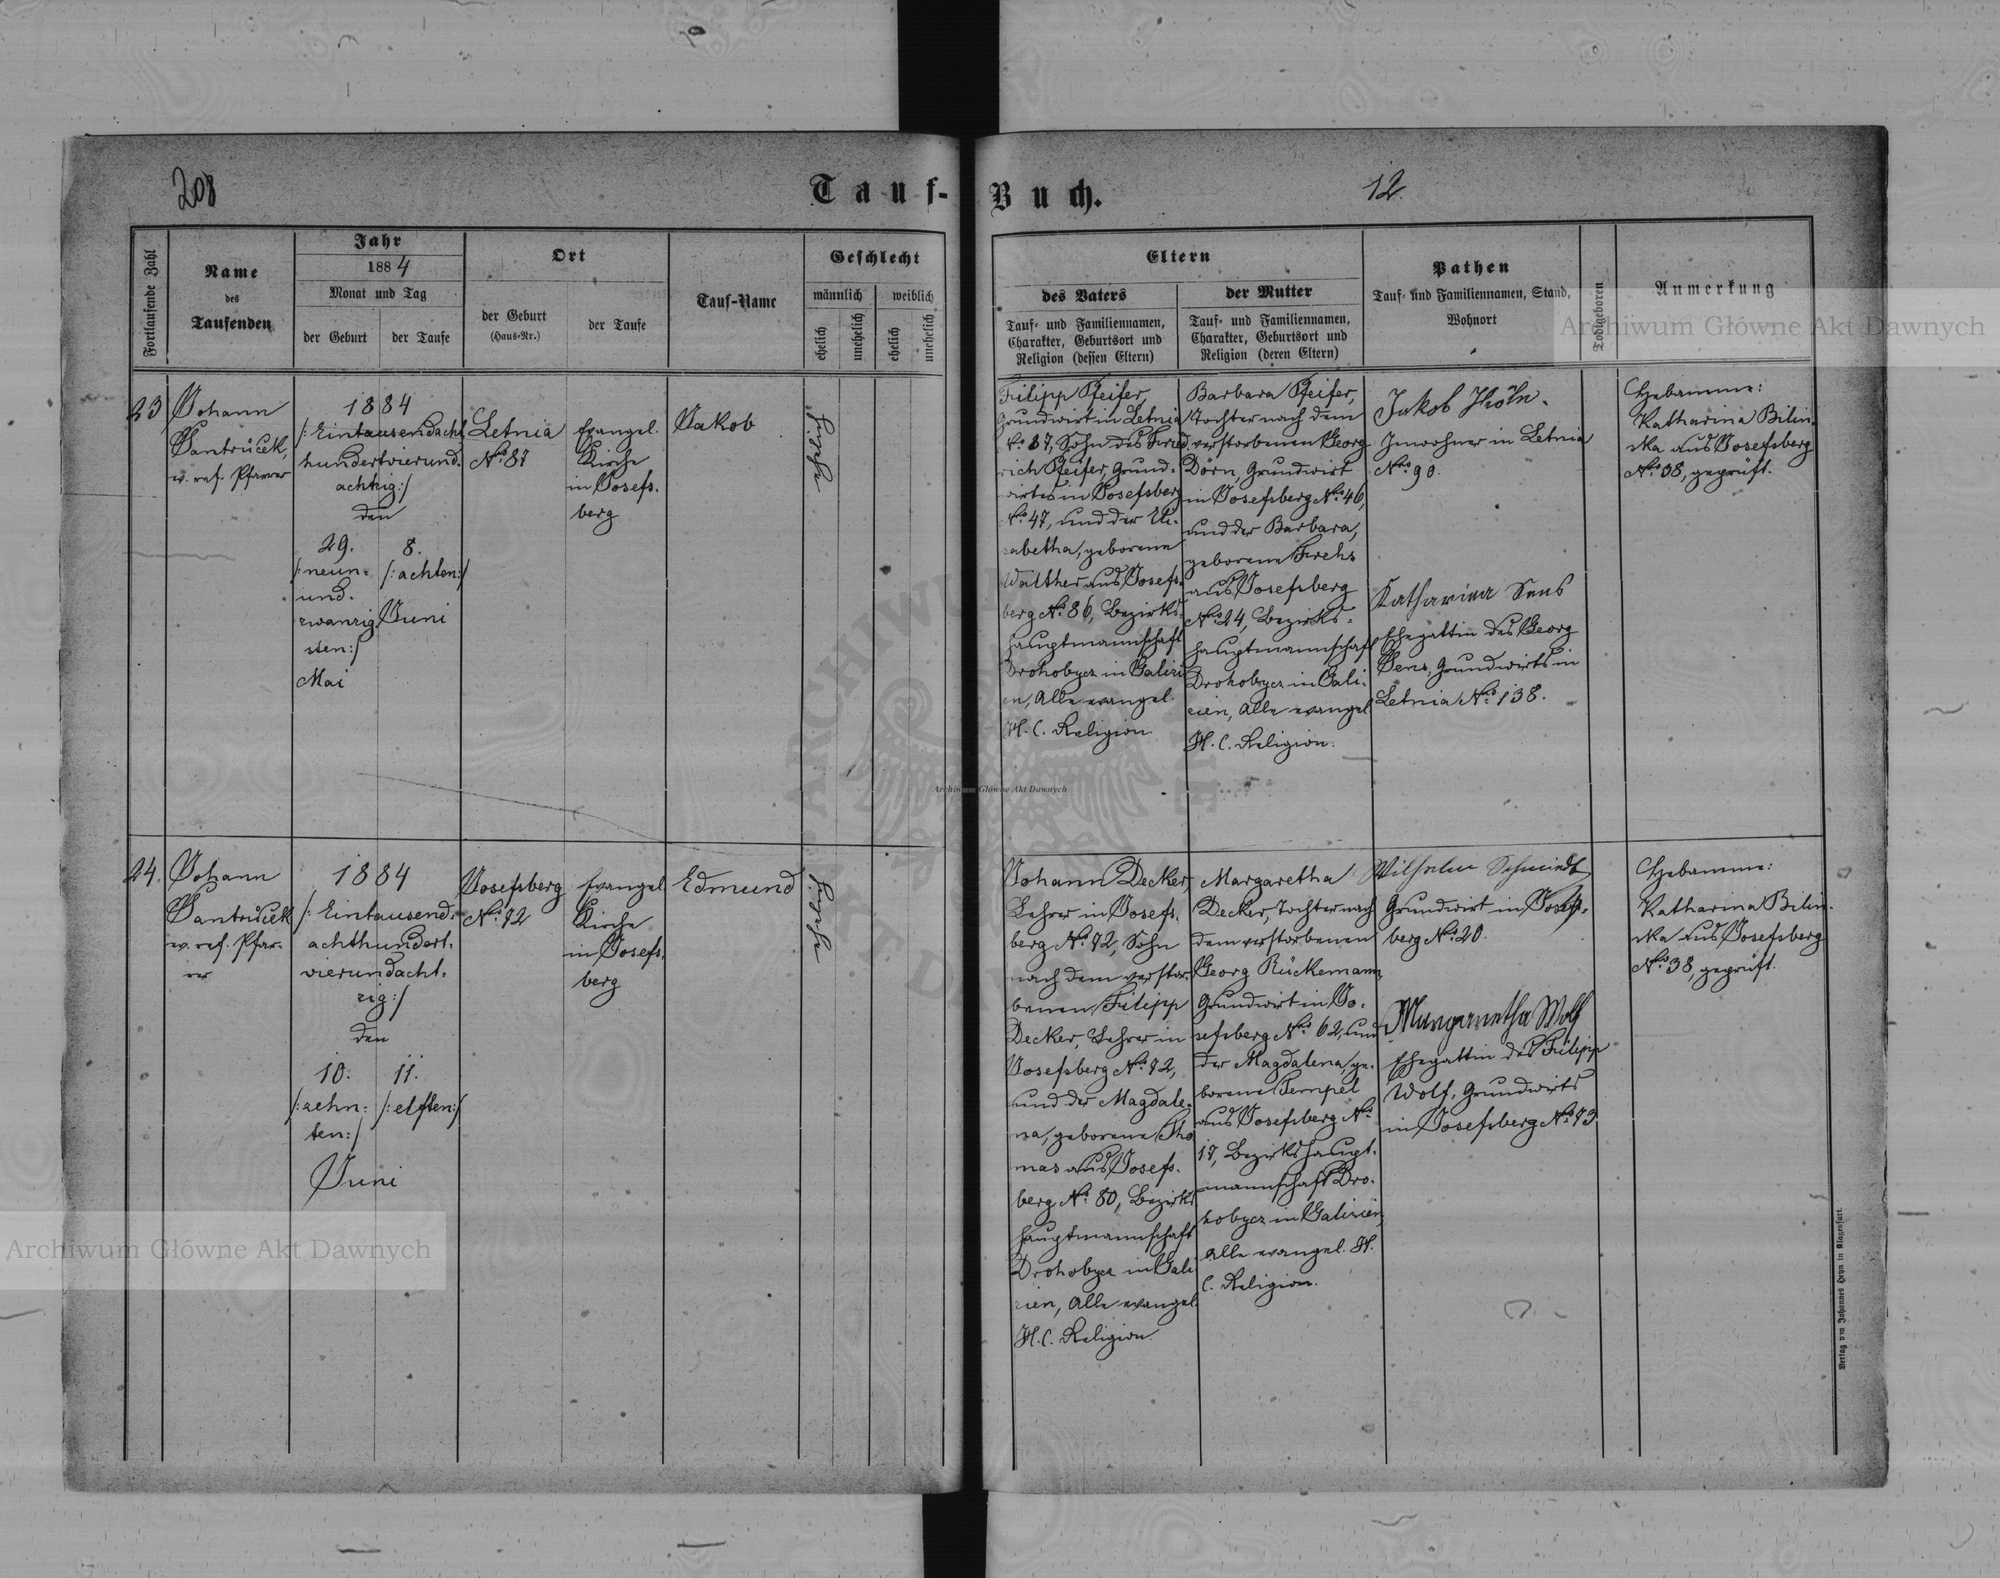 208
Tauf-
Buch.
12.
Fortlaufende Zahl
Name
des
Taufenden
Jahr
1884
Monat und Tag
der Geburt
der Taufe
Ort
der Geburt
(Haus-Nr.)
der Taufe
Tauf-Name
Geschlecht
männlich
weiblich
ehelich
unehelich
ehelich
unehelich
Eltern
des Vaters
Tauf- und Familiennamen,
Charakter, Geburtsort und
Religion (dessen Eltern)
der Mutter
Tauf- und Familiennamen,
Charakter, Geburtsort und
Religion (deren Eltern)
Pathen
Tauf- und Familiennamen, Stand,
Wohnort
Todtgeboren
Anmerkung
23
Johann
Jantrucek,
ev. ref. Pfarrer
1884
/: Eintausendacht
hundertvierund-
achtzig:/
den
29.
/: neun-
und-
zwanzig-
sten:/
Mai
8.
/: achten:/
Juni
Letnia
No. 87
Evangel.
Kirche
in Josefs-
berg
Jakob
Filipp Pfeifer,
Grundwirt in Letnia
No. 87, Sohn des Fried-
rich Pfeifer, Grund-
wirtes in Josefsberg
No. 47, und der Eli-
sabetha, geborene
Walther aus Josefs-
berg No. 86, Bezirks-
hauptmannschaft
Drohobycz in Galizi-
en, Alle evangel.
H. C. Religion.
Barbara Pfeifer,
Tochter nach dem
verstorbenen Georg
Dörn, Grundwirt
in Josefsberg No. 46,
und der Barbara,
geborene Frehs
aus Josefsberg
No. 24, Bezirks-
hauptmannschaft
Drohobycz in Gali-
zien, Alle evangel
H. C. Religion.
Jakob
Inwohner in Letnia
No. 90.
Katharina Sens
Ehegattin des Georg
Sens, Grundwirts in
Letnia No. 138.
Hebamme:
Katharina Bilin-
ska aus Josefsberg
No. 38, geprüft.
24.
Johann
Jantrucek
ev. ref. Pfar-
rer
1884
/: Eintausend-
achthundert-
vierundacht-
zig:/
den
10.
/: zehn-
ten:/
11.
/: elften:/
Juni
Josefsberg
No. 72
Evangel.
Kirche
in Josefs-
berg
Edmund
Johann Decker,
Lehrer in Josefs-
berg No. 72, Sohn
nach dem verstor-
benen Filipp
Decker, Lehrer in
Josefsberg No. 72,
und der Magdale-
na, geborene Tho
mas aus Josefs-
berg No. 80, Bezirks
hauptmannschaft
Drohobycz in Gali
zien, Alle evangel.
H. C. Religion.
Margaretha
Decker, Tochter nach
dem verstorbenen
Georg Rückemann,
Grundwirt in Jo-
sefsberg No. 62, und
der Magdalena, ge-
borene Tempel
aus Josefsberg No.
17, Bezirkshaupt-
mannschaft Dro-
hobycz in Galizien,
Alle evangel. H.
C. Religion.
Wilhelm Schmidt
Grundwirt in Josefs-
berg No. 20.
Margaretha Wolf
Ehegattin des Filipp
Wolf, Grundwirts
in Josefsberg No. 73
Hebamme:
Katharina Bilin-
ska aus Josefsberg
No. 38, geprüft.
Verlag von Johannes Heyn in Klagenfurt.
Archiwum Główne Akt Dawnych
Archiwum Główne Akt Dawnych
Archiwum Główne Akt Dawnych